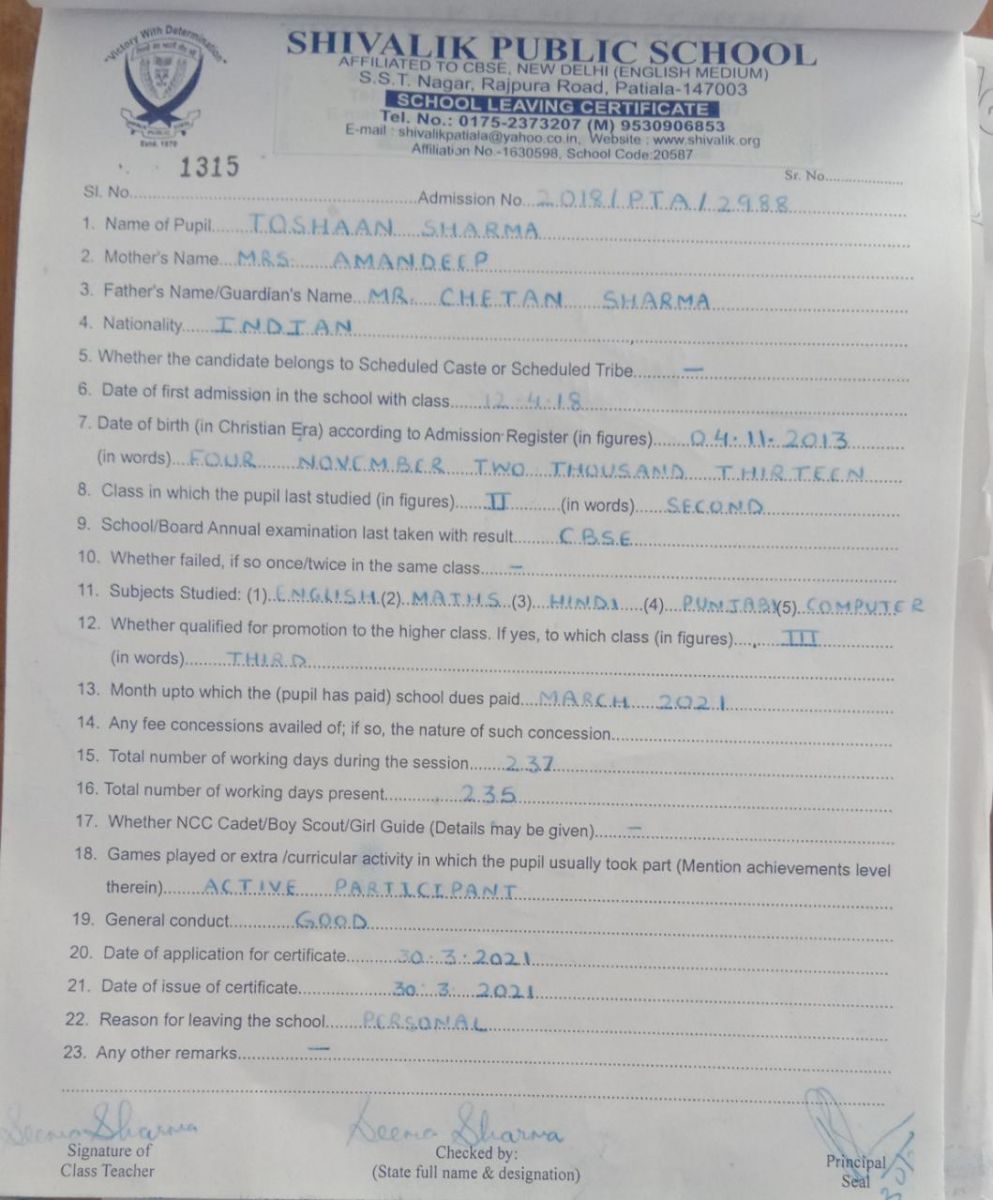 "Victory With Determination"
SHIVALIK PUBLIC SCHOOL
AFFILIATED TO CBSE, NEW DELHI (ENGLISH MEDIUM)
S.S.T. Nagar, Rajpura Road, Patiala-147003
SCHOOL LEAVING CERTIFICATE
Tel. No.: 0175-2373207 (M) 9530906853
E-mail : shivalikpatiala@yahoo.co.in, Website : www.shivalik.org
Affiliation No.-1630598, School Code:20587
Estd. 1970
1315
Sr. No..................
Sl. No.................. Admission No. 2018/PTA/2988
1. Name of Pupil...... TOSHAAN SHARMA
2. Mother's Name... MRS. AMANDEEP
3. Father's Name/Guardian's Name... MR. CHETAN SHARMA
4. Nationality...... INDIAN
5. Whether the candidate belongs to Scheduled Caste or Scheduled Tribe........ —
6. Date of first admission in the school with class...... 12.4.18
7. Date of birth (in Christian Era) according to Admission Register (in figures)...... 04.11.2013
(in words)... FOUR NOVEMBER TWO THOUSAND THIRTEEN
8. Class in which the pupil last studied (in figures)...... II ......(in words)...... SECOND
9. School/Board Annual examination last taken with result....... CBSE
10. Whether failed, if so once/twice in the same class...... —
11. Subjects Studied: (1) ENGLISH (2) MATHS (3) HINDI (4) PUNJABI (5) COMPUTER
12. Whether qualified for promotion to the higher class. If yes, to which class (in figures)...... III
(in words)...... THIRD
13. Month upto which the (pupil has paid) school dues paid... MARCH 2021
14. Any fee concessions availed of; if so, the nature of such concession..................
15. Total number of working days during the session...... 237
16. Total number of working days present...... 235
17. Whether NCC Cadet/Boy Scout/Girl Guide (Details may be given)...... —
18. Games played or extra /curricular activity in which the pupil usually took part (Mention achievements level
therein)...... ACTIVE PARTICIPANT
19. General conduct...... GOOD
20. Date of application for certificate...... 30.3.2021
21. Date of issue of certificate...... 30.3.2021
22. Reason for leaving the school...... PERSONAL
23. Any other remarks...... —
Seema Sharma Seema Sharma
Signature of Checked by: Principal
Class Teacher (State full name & designation) Seal